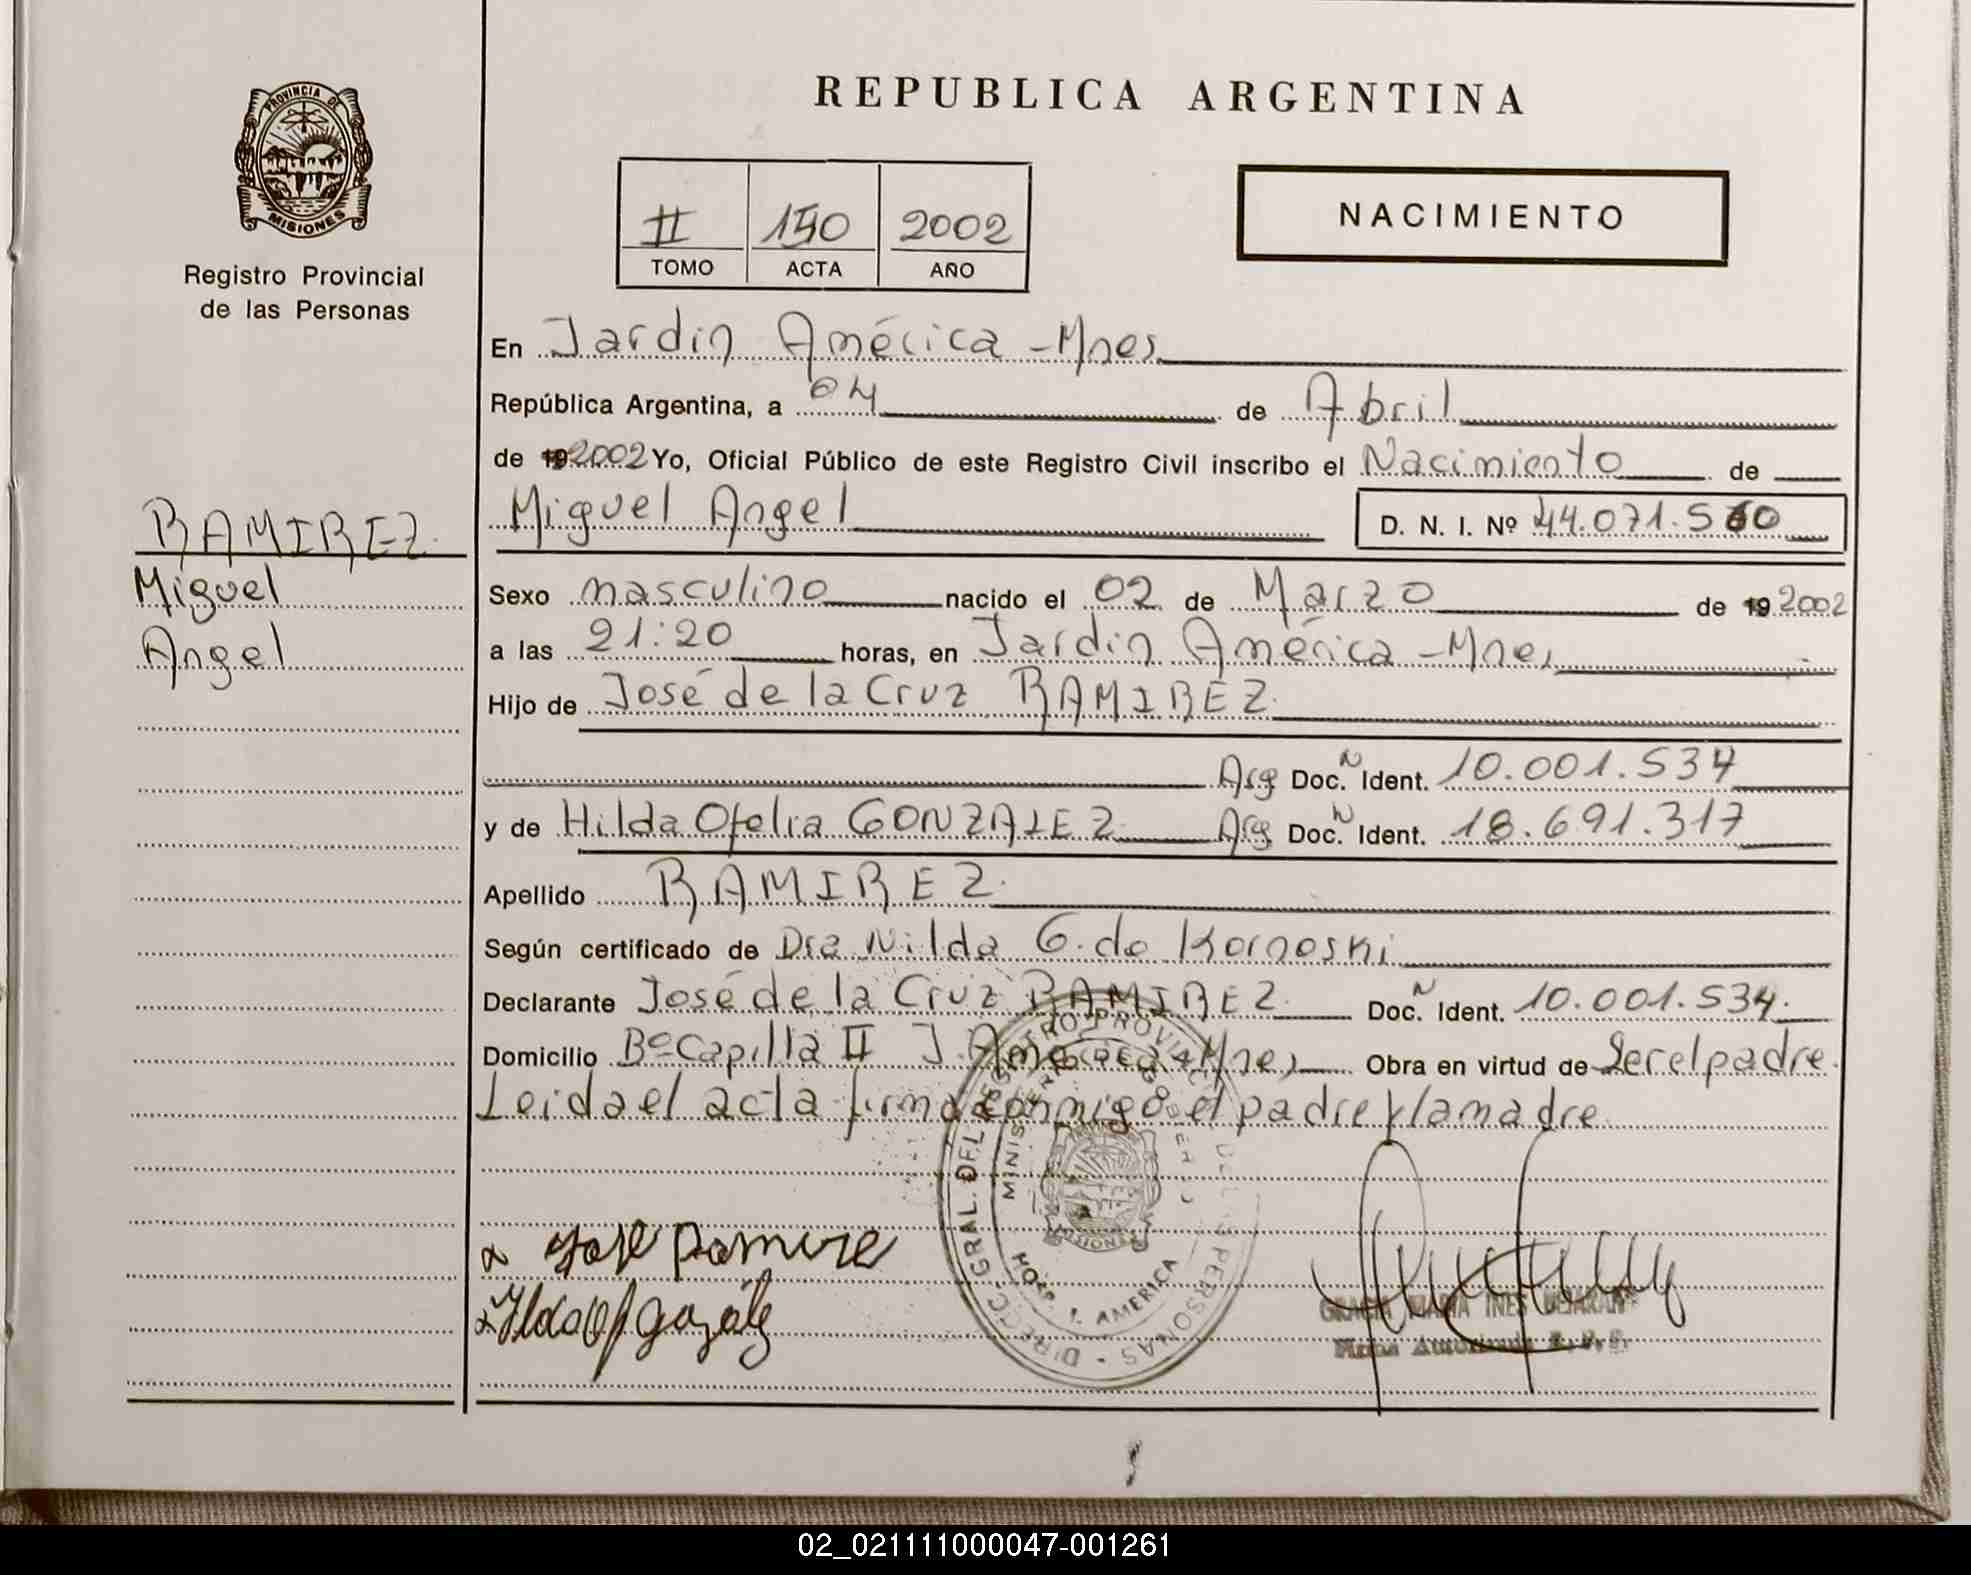 PROVINCIA DE
MISIONES
Registro Provincial
de las Personas
REPUBLICA ARGENTINA
II 150 2002
TOMO ACTA AÑO
NACIMIENTO
En Jardin América - Mnes
República Argentina, a 04 de Abril
de 19 2002 Yo, Oficial Público de este Registro Civil inscribo el Nacimiento de
Miguel Angel D. N. I. Nº 44.071.560
RAMIREZ
Miguel
Angel
Sexo masculino nacido el 02 de Marzo de 19 2002
a las 21:20 horas, en Jardin América - Mnes
Hijo de José de la Cruz RAMIREZ
Arg Doc. N Ident. 10.001.534
y de Hilda Ofelia GONZALEZ Arg Doc. N Ident. 18.691.317
Apellido RAMIREZ
Según certificado de Dra Nilda G. de Kornoski
Declarante José de la Cruz RAMIREZ Doc. N Ident. 10.001.534
Domicilio Bº Capilla II J. América - Mnes Obra en virtud de Ser el padre
Leida el acta firma conmigo el padre y la madre
DIRECC. GRAL. DEL REGISTRO PROVINCIAL DE LAS PERSONAS
MISIONES
HOSP. J. AMERICA
Jose Ramire
Hilda Of González
MARIA INES
Firma Autorizada
02_021111000047-001261